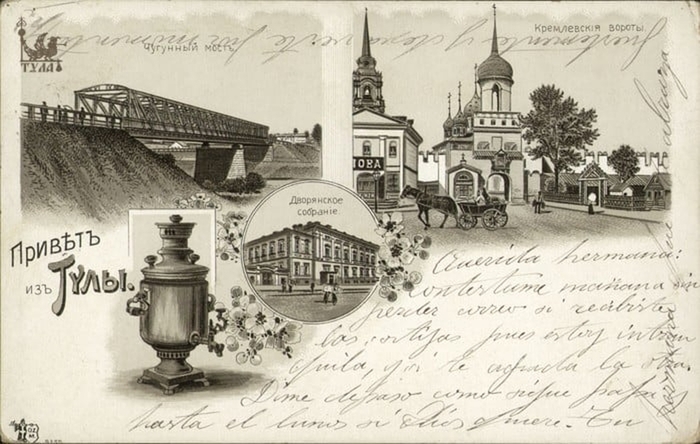 ТУЛА
Чугунный мостъ.
Кремлевскія вороты.
НОВА
Дворянское
собраніе.
Привѣтъ
изъ Тулы.
Querida hermana:
contestame mañana sin
perder correo si recibiste
las cortijas pues estoy intran
quila, y si te agrada la otra.
Dime de paso como sigue papá
hasta el lunes si Dios quiere. Tu
hermana que